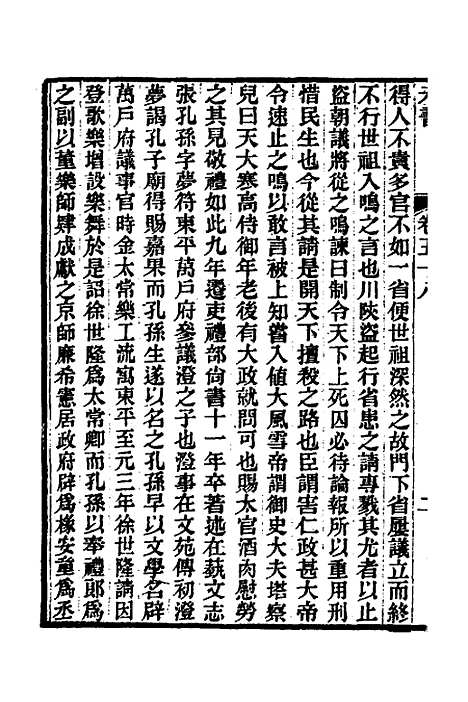 元書 卷五十八 二
得人不貴多官不如一省便世祖深然之故門下省屢議立而終
不行世祖入鳴之言也川陝盜起行省患之請專戮其尤者以止
盜朝議將從之鳴諫曰制令天下上死囚必待論報所以重用刑
惜民生也今從其請是開天下擅殺之路也臣謂害仁政甚大帝
令速止之鳴以敢言被上知嘗入値大風雪帝謂御史大夫塔察
兒曰天大寒高侍御年老後有大政就問可也賜太官酒肉慰勞
之其見敬禮如此九年遷吏禮部尙書十一年卒著述在藝文志
張孔孫字夢符東平萬戶府參議澄之子也澄事在文苑傳初澄
夢謁孔子廟得賜嘉果而孔孫生遂以名之孔孫早以文學名辟
萬戶府議事官時金太常樂工流寓東平至元三年徐世隆請因
登歌樂增設樂舞於是詔徐世隆爲太常卿而孔孫以奉禮郎爲
之副以董樂師肄成獻之京師廉希憲居政府辟爲掾安童爲丞